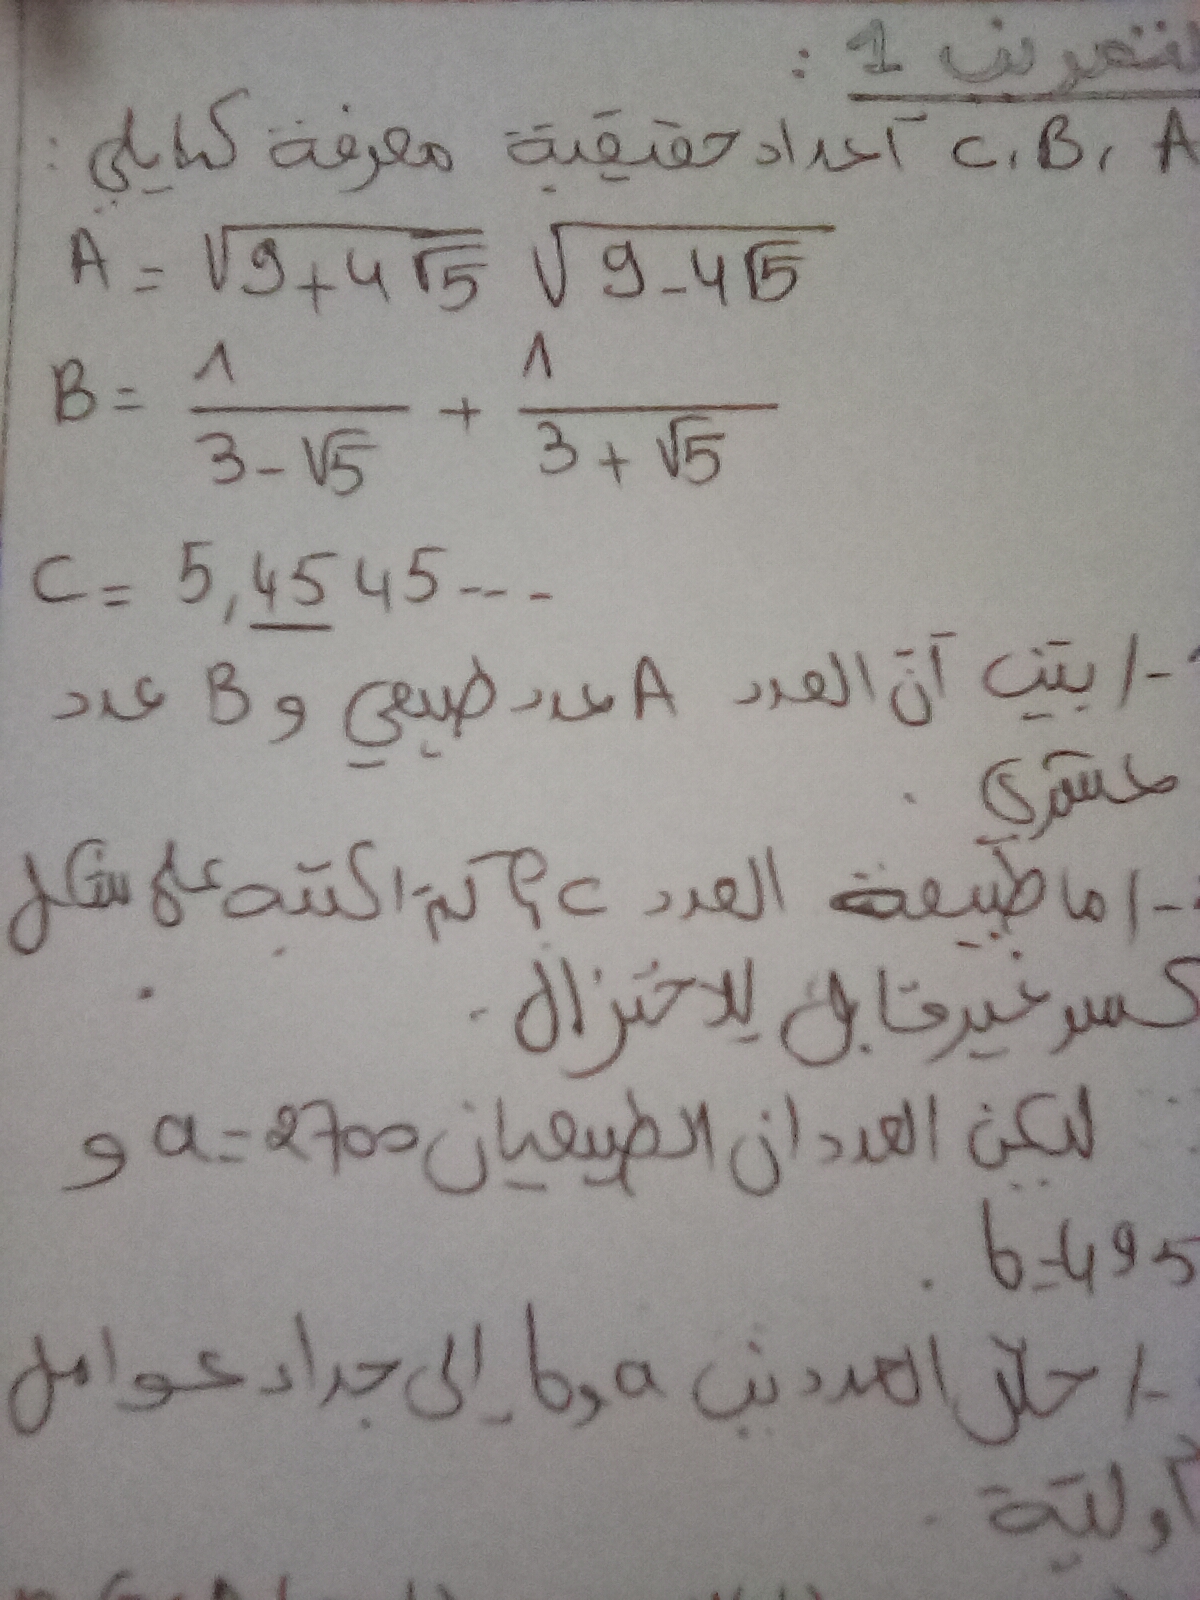 تمرين 1 :
C، B، A أعداد حقيقية معرفة كمايلي :
A = √(9+4√5) √(9-4√5)
B = 1/(3-√5) + 1/(3+√5)
C = 5,4545---
-/ بيّن أنّ العدد A عدد طبيعي و B عدد
عشري .
-/ ما طبيعة العدد C؟ ثم اكتبه على شكل
كسر غير قابل للاختزال .
ليكن العددان الطبيعيان a=2700 و
b=495 .
-/ حلّل العددين a و b إلى جداء عوامل
أولية .